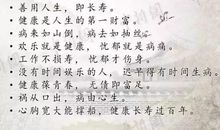 善用人生，即长寿。
健康是人生的第一财富。
病来如山倒，病去如抽丝。
欢乐就是健康，忧郁就是病痛。
工作不损寿，忧郁才伤身。
没有时间娱乐的人，迟早得有时间生病。
健康葆青春，无债即富足。
祸从口出，病由心生。
心胸宽大能撑船，健康长寿过百年。